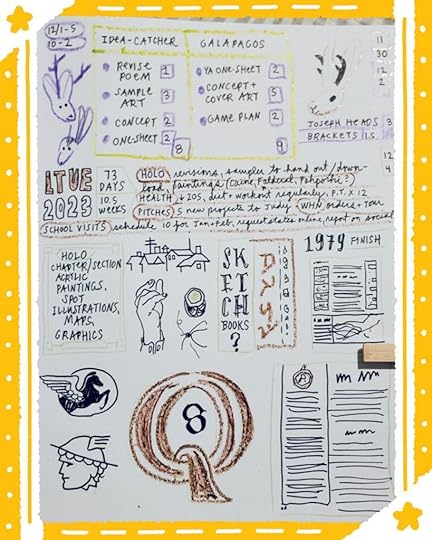 12/1-5
10-2
IDEA-CATCHER
REVISE POEM 1
SAMPLE ART 3
CONCEPT 2
ONE-SHEET 2
8
GALAPAGOS
YA ONE-SHEET 2
CONCEPT + COVER ART 5
GAME PLAN 2
9
11
30
12
2
JOSEPH HEADS 3
BRACKETS 1.5
12
4
2023
73 DAYS
10.5 WEEKS
HOLO revisions, sampler to hand out / down-
load, paintings
HEALTH diet + workout regularly, P.T. X 12
PITCHES 5 new projects to Judy WHN orders + tour
SCHOOL VISITS schedule 10 for Jan + Feb, request states online, report on social
HOLO
CHAPTER/SECTION
ACRYLIC
PAINTINGS,
SPOT
ILLUSTRATIONS,
MAPS,
GRAPHICS
SKETCH
BOOKS
?
1979 FINISH
8